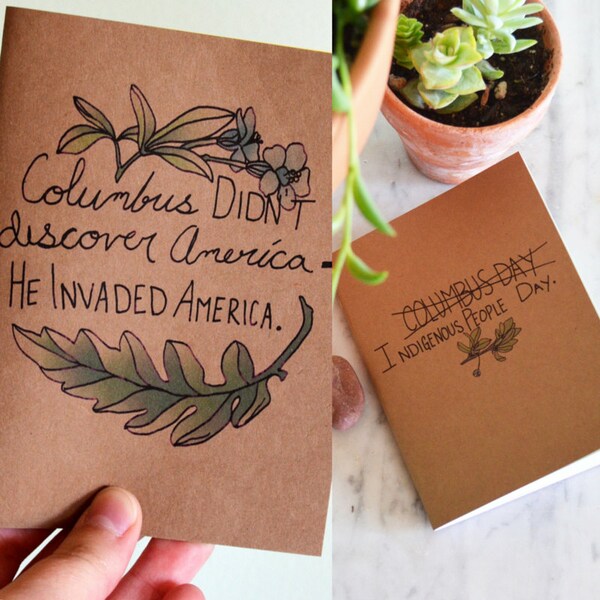 Columbus DIDN'T
discover America -
HE INVADED AMERICA.
COLUMBUS DAY
INDIGENOUS PEOPLE DAY.